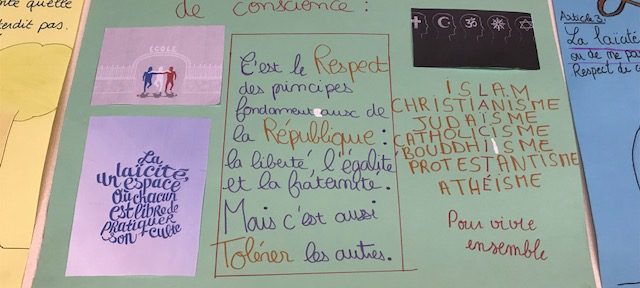 quelle
pas.
de conscience :
ÉCOLE
La
laïcité,
un espace
où chacun
est libre de
pratiquer
son culte
C'est le Respect
des principes
fondamentaux de
la République :
la liberté, l'égalité
et la fraternité.
Mais c'est aussi
Tolérer les autres.
ISLAM
CHRISTIANISME
JUDAÏSME
CATHOLICISME
BOUDDHISME
PROTESTANTISME
ATHÉISME
Pour vivre
ensemble
Article 3:
La laïcité
ou de ne pa
Respect du